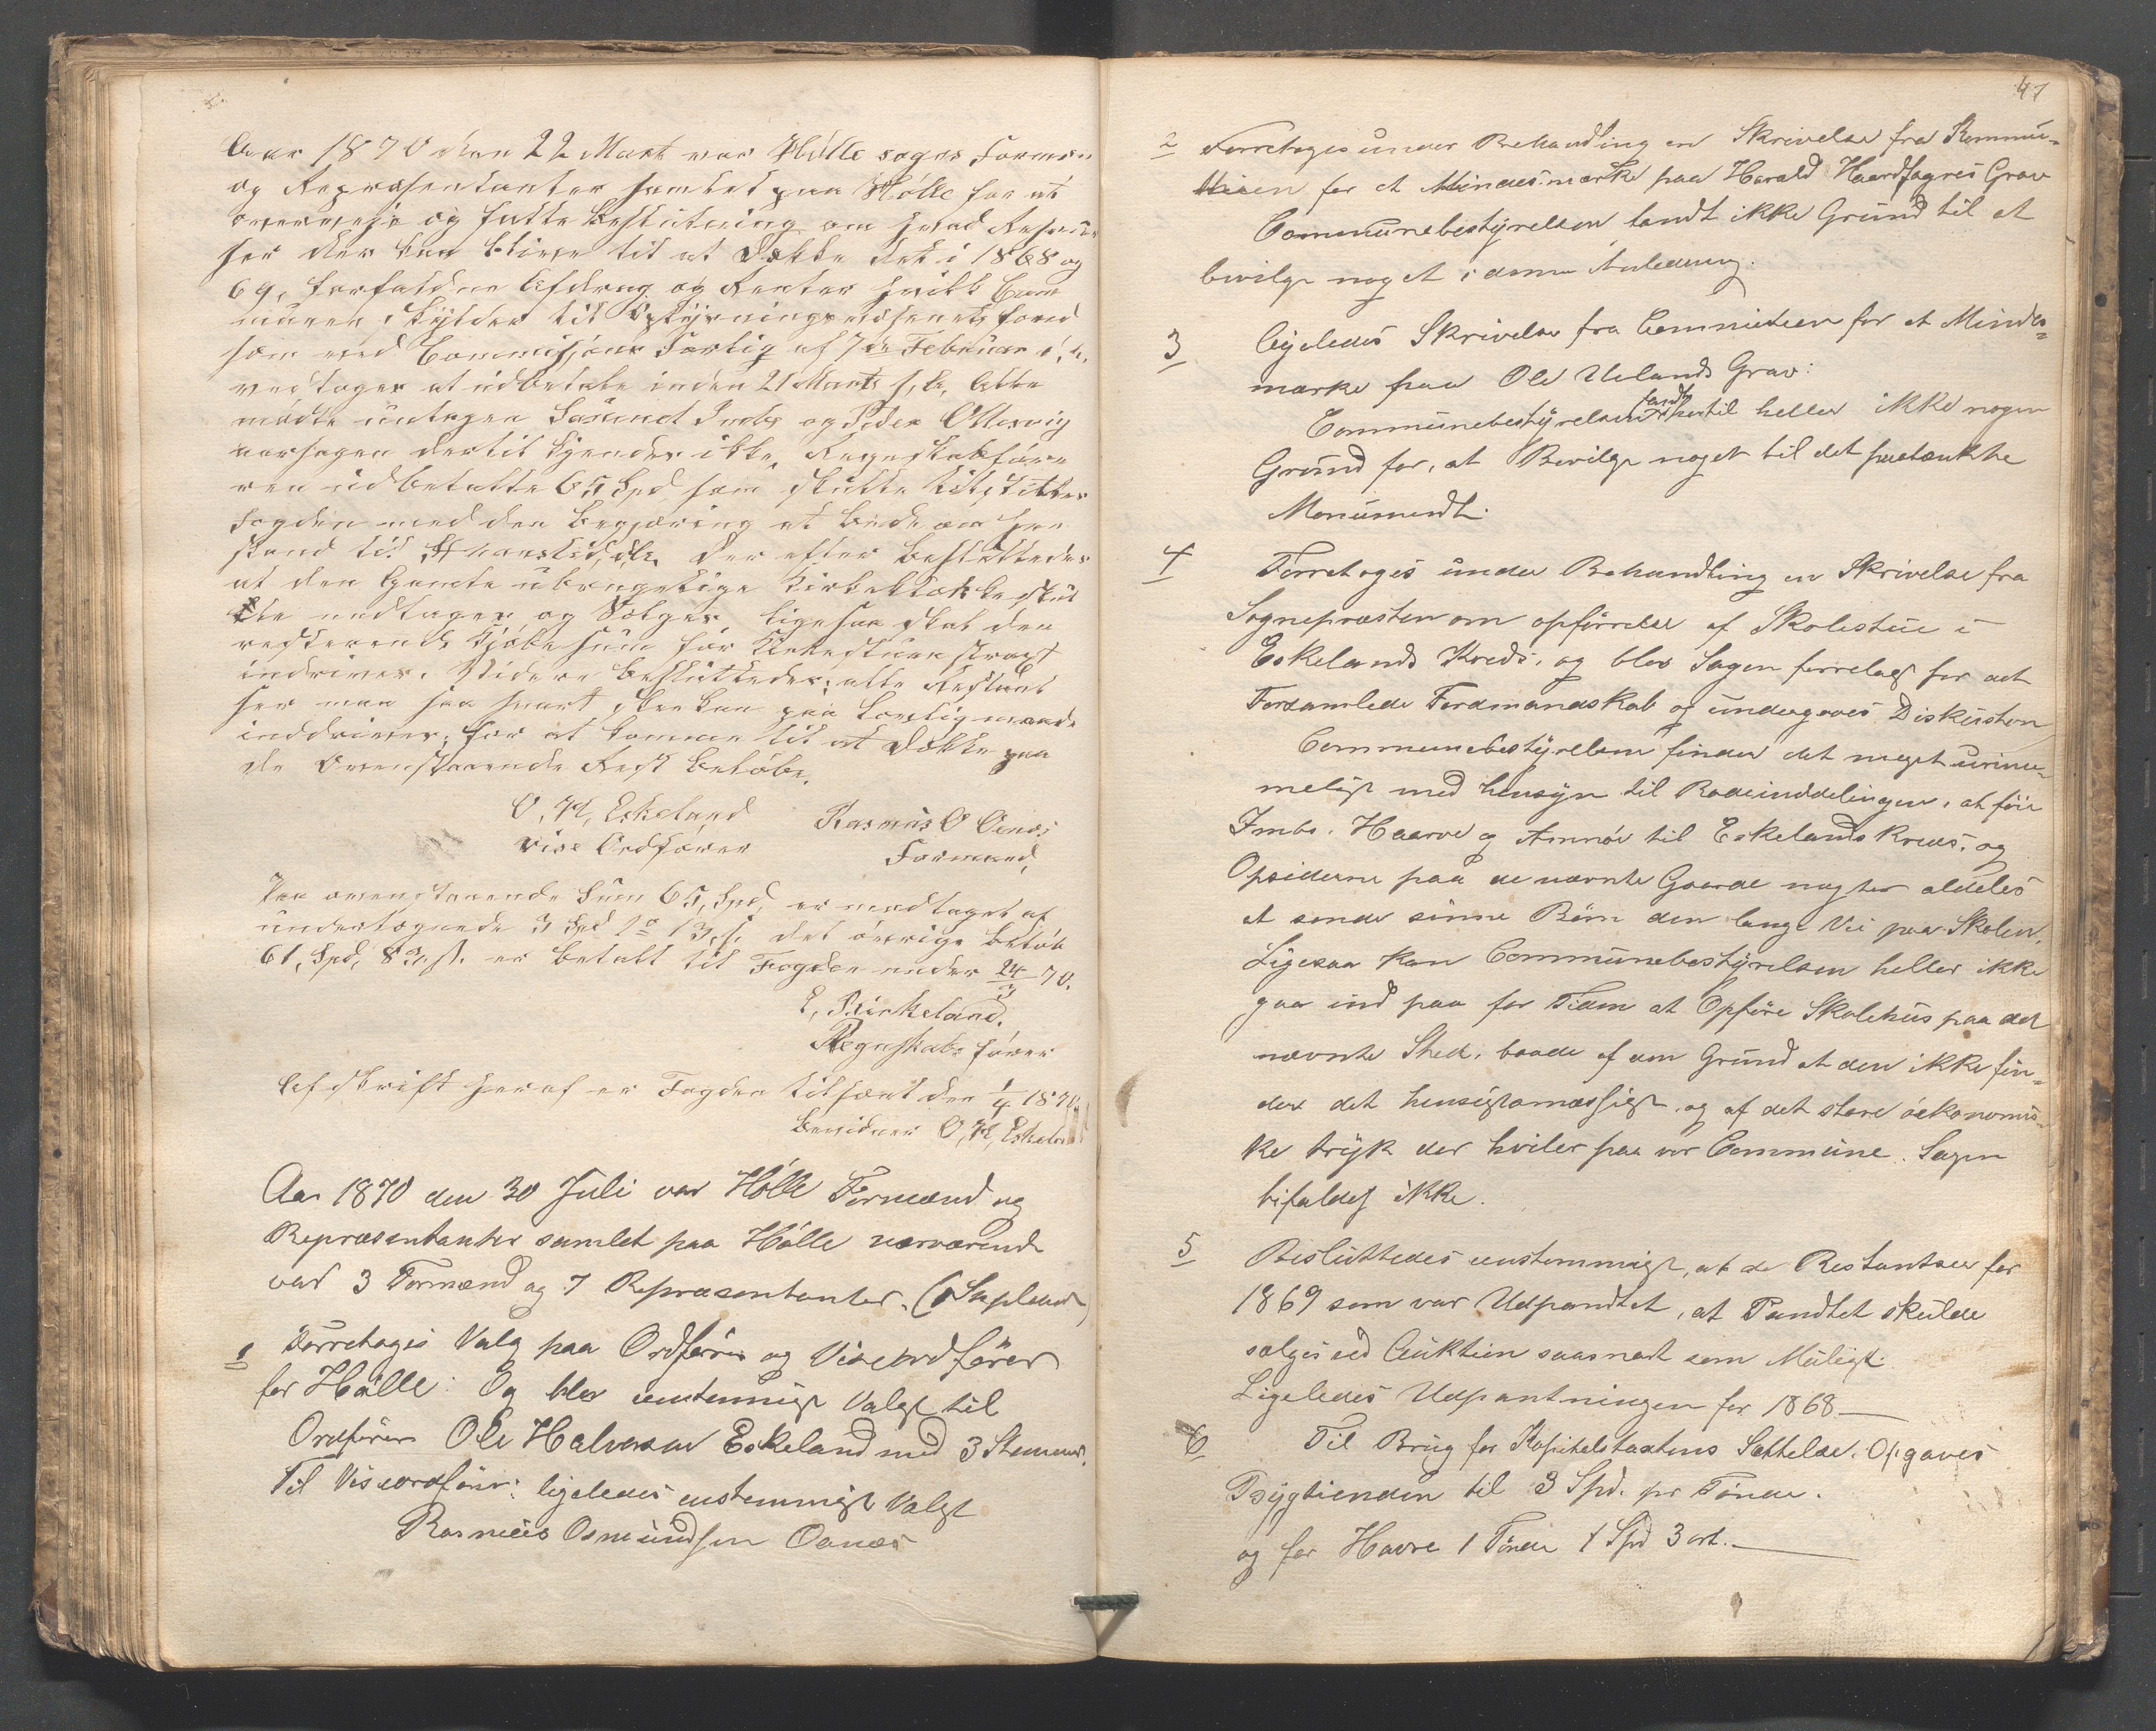 Aar 1870 den 22 Mart var Hølle sogns Formæn
og Repræsentanter samlet paa Hølle for at
overveje og fatte Beslutning om hvad Resour
ser der kan blive til at Dække det i 1868 og
69, forfaldne Afdrag og Renter hvilk Com
munen skylder til Oplysningsvæsenets fond
som ved Commissjons Forlig af 7de Februar d. a.
vedtoges at udbetale inden 21 Marts s, a, Alle
mødte untagen Peder Ottesvig
aarsagen dertil kjendes ikke, Regnskabsføre
ren udbetalte 65 Spd som skulle tilstilles
Fogden med den begjæring at bede om hen
stand til Høstetid, Der efter besluttedes
at den Gamle ubrugelige Kirkeklokke skul
de nedtages og Sælges, ligesaa skal den
resterende Kjøbesum for Kirkestuen strax
indrives. Videre besluttedes; alle Restant
ser man saa snart ske kan paa Lovlig maade
inddrives, for at komme til at Dække paa
de Ovenstaaende Rest beløbe,
O, H, Eskeland
vise Ordfører
Rasmus O Oanæs
Formand,
Paa ovenstaaende Sum 65, Spd, er modtaget af
undertegnede 3 Spd 1o 13, s. det øvrige beløb
61, Spd, 83, s. er betalt til Fogden under 24/3 70.
E, Birkeland.
Regnskabs fører
Afskrift heraf er Fogden tilsænt den 1/4 1870
bevidner O, H, Eskeland
Aar 1870 den 30 Juli var Hölle Formænd og
Repræsentanter samlet paa Hölle nærværende
var 3 Formænd og 7 Repræsentanter. (1 Supleant)
1 Förretoges Valg paa Ordförer og Viseordförer
for Hölle: Og blev enstemmigt Valgt til
Ordförer Ole Halvorsen Eskeland med 3 Stemmer.
Til Viseordförer: ligeledes enstemmigt Valgt
Rasmus Osmundsen Oanæs
47
2 Forretoges under Behandling en Skrivelse fra Kommu-
tteen for et Mindesmærke paa Harald Haardfagres Grav
Communebestyrelsen fandt ikke Grund til at
bevilge noget i denne Anledning.
3 ligeledes Skrivelse fra Commiteen for et Mindes-
mærke paa Ole Uelands Grav:
Communebestyrelsen fandt hertil heller ikke nogen
Grund for, at Bevilge noget til det paatænkte
Monumendt.
4 Förretoges under Behandling en Skrivelse fra
Sognepræsten om opförrelse af Skolestue i
Eskelands Kreds. og blev Sagen forrelagt for det
Forsamlede Formandskab og undergaves Diskusion
Communebestyrelsen finder det meget urime-
meligt med hensyn til Rodeinddelingen, at föie
Imbs. Haavve og Amnöe til Eskelands Kreds. og
Opsiderne paa de nævnte Gaarde nægter aldeles
at sende sinne Börn den lange Vei paa Skolen.
Ligesaa kan Communebestyrelsen heller ikke
gaa ind paa for Tiden at Opföre Skolehus paa det
nævnte Sted. baade af den Grund at den ikke fin-
der det hensigtsmæssigt og af det store öekonomis-
ke tryk der hviler paa vor Commune. Sagen
bifaldes ikke.
5 Besluttedes enstemmigt, at de Restantser for
1869 som var Udpandtet, at Pandtet skulde
sælges ved Auktion saasnart som Muligt.
Ligeledes Udpantningen for 1868 —
6 Til Brug for Kapitelstaxtens Sættelse. Opgaves
Bygtienden til 3 Spd. pr Tönde.
og for Havre 1 Tönde 1 Spd 3 ort. —